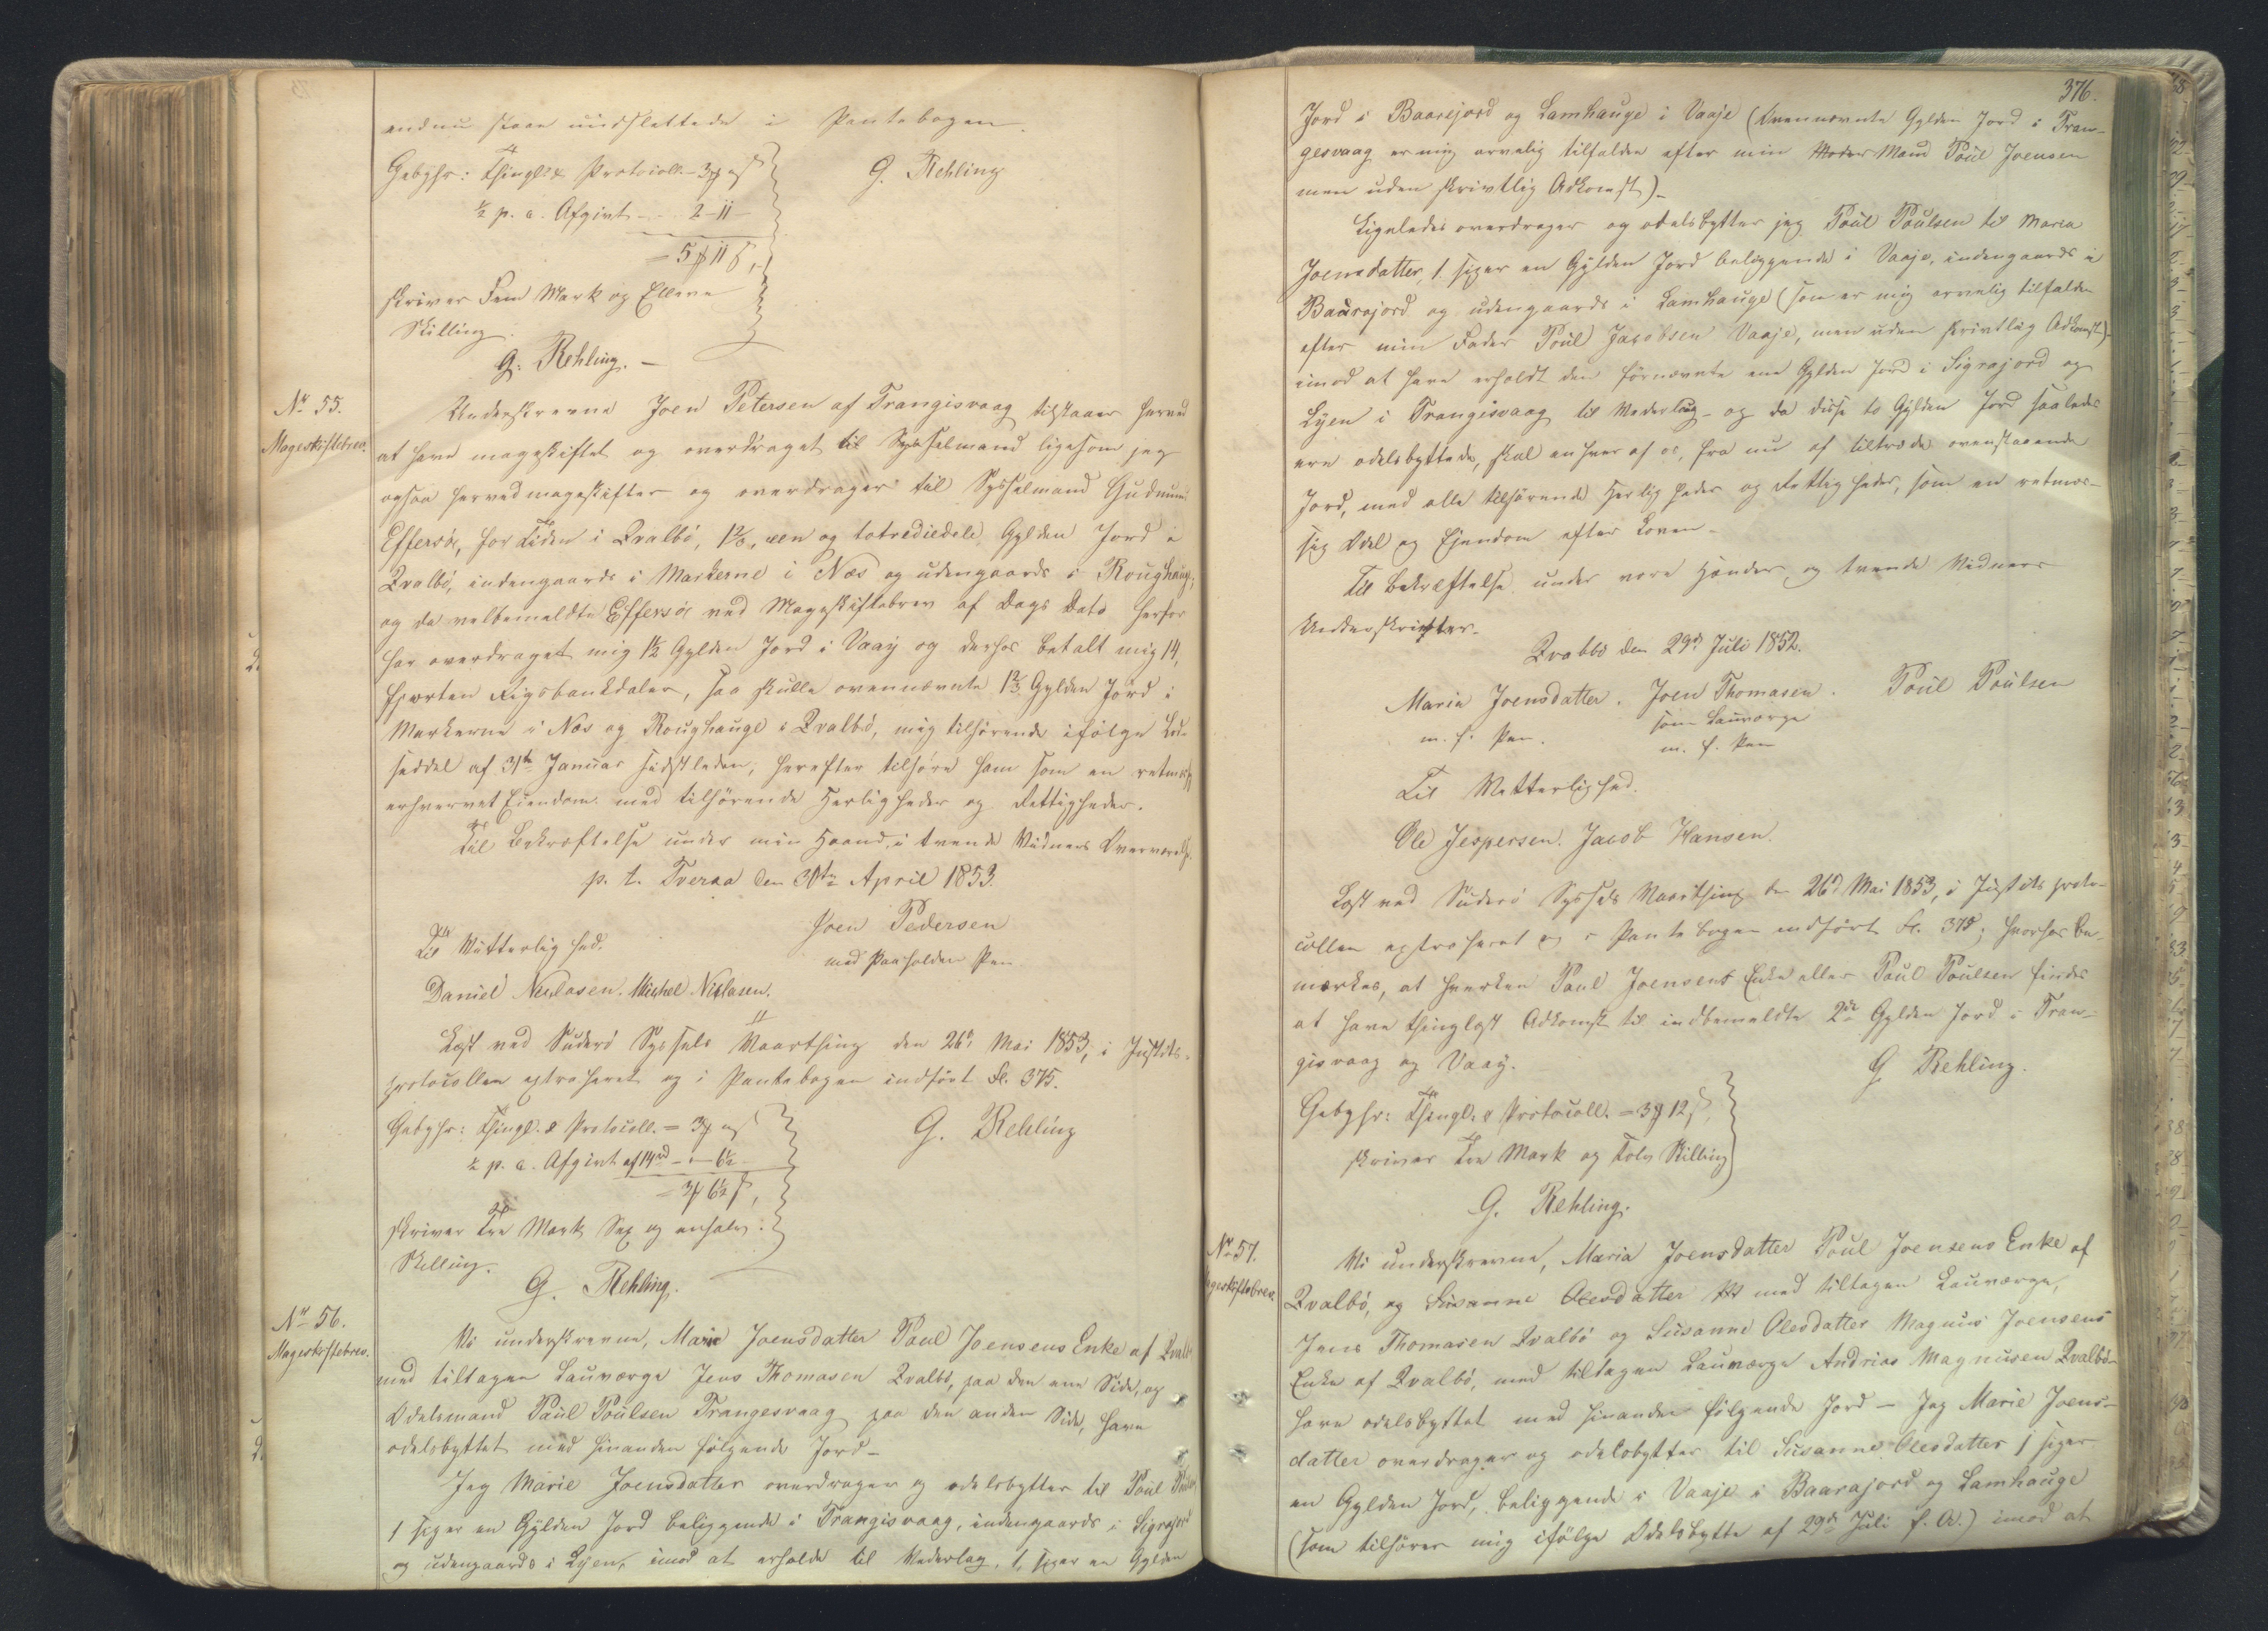 endnu staae uudslettede i Pantebogen.
Gebyhr: Thingl. & Protocoll. 3 ₰ " ß
G. Rehling
½ p. c. Afgivt - 2 - 11 -
= 5 ₰ 11 ß,
skriver Fem Mark og Elleve
Skilling.
G. Rehling. -
No 55.
Mageskiftebrev.
Underskrevne Joen Petersen af Trangisvaag tilstaaer herved
at have mageskiftet og overdraget til Sysselmand ligesom jeg
ogsaa herved mageskifter og overdrager til Sysselmand Gudmund
Effersøe, for Tiden i Qvalbø, 1⅔, een og totrediedele Gylden Jord i
Qvalbø, indengaards i Markerne i Næs og udengaards i Roughauge;
og da velbemeldte Effersøe ved Mageskiftebrev af Dags Dato herfor
har overdraget mig 1½ Gylden Jord i Vaay og derhos betalt mig 14,
fjorten Rigsbankdaler, saa skulle ovennævnte 1⅔ Gylden Jord i
Markerne i Næs og Roughauge i Qvalbø, mig tilhørende ifølge Lod-
seddel af 31te Januar sidstleden, herefter tilhøre ham som en retmæssig
erhvervet Eiendom med tilhørende Herligheder og Rettigheder.
Til Bekræftelse under min Haand, i tvende Vidners Overværelse.
p. t. Tveraa den 30te April 1853.
Joen Pedersen
Til Vitterlighed.
med paaholden Pen
Daniel Niclasen. Michel Niclasen.
Læst ved Suderø Syssels Vaarthing den 26de Mai 1853, i Justits-
protocollen extraheret og i Pantebogen indført Fl. 375.
Gebyhr: Thingl. & Protocoll. = 3 ₰ " ß
G. Rehling
½ p. c. Afgivt af 14 rd - " - 6½
= 3 ₰ 6½ ß,
skriver Tre Mark Sex og enhalv
Skilling.
G. Rehling.
No 56.
Mageskiftebrev.
Vi underskrevne, Marie Joensdatter Poul Joensens Enke af Qvalbø
med tiltagen Lauværge Jens Thomasen Qvalbø, paa den ene Side, og
Odelsmand Poul Poulsen Trangesvaag paa den anden Side, have
odelsbyttet med hinanden følgende Jord -
Jeg Marie Joensdatter overdrager og odelsbytter til Poul Poulsen
1 siger en Gylden Jord beliggende i Trangisvaag, indengaards i Sigrajord
og udengaards i Lyen, imod at erholde til Vederlag, 1, siger en Gylden
376.
Jord i Baarejord og Lamhauge i Vaaje (Ovennævnte Gylden Jord i Tran-
gesvaag er mig arvelig tilfalden efter min Moder Mand Poul Joensen
men uden skrivtlig Adkomst).
Ligeledes overdrager og odelsbytter jeg Poul Poulsen til Maria
Joensdatter, 1 siger en Gylden Jord beliggende i Vaaje, indengaards i
Baarajord og udengaards i Lamhauge (som er mig arvelig tilfalden
efter min Fader Poul Jacobsen Vaaje, men uden skrivtlig Adkomst)
imod at have erholdt den førnævnte ene Gylden Jord i Sigrajord og
Lyen i Trangisvaag til Vederlag - og da disse to Gylden Jord saaledes
ere odelsbyttede, skal enhver af os, fra nu af tiltræde ovenstaaende
Jord, med alle tilhørende Herligheder og Rettigheder, som en retmæs-
sig Odel og Ejendom efter Loven -
Til Bekræftelse under vore Hænder og tvende Vidners
Underskrifter.
Qvalbø den 29de Juli 1852.
Maria Joensdatter. Joen Thomasen. Poul Poulsen
m. f. Pen. som Lauværge
m. f. Pen
Til Vitterlighed.
Ole Jespersen. Jacob Hansen.
Læst ved Suderø Syssels Vaarthing den 26de Mai 1853, i Justitsproto-
collen extraheret og i Pantebogen indført Fl. 375; hvorhos be-
mærkes, at hverken Poul Joensens Enke eller Poul Poulsen findes
at have thinglæst Adkomst til indbemeldte 2de Gylden Jord i Tran-
gisvaag og Vaay.
G Rehling.
Gebyhr: Thingl. & Protocoll. = 3 ₰ 12 ß,
skriver Tre Mark og Tolv Skilling
G. Rehling.
No 57.
Mageskiftebrev.
Vi underskrevne, Maria Joensdatter Poul Joensens Enke af
Qvalbø, og Susanne Olesdatter med tiltagen Lauværge,
Jens Thomasen Qvalbø og Susanne Olesdatter Magnus Joensens
Enke af Qvalbø, med tiltagen Lauværge Andrias Magnusen Qvalbø-
have odelsbyttet med hinanden følgende Jord - Jeg Marie Joens-
datter overdrager og odelsbytter til Susanne Olesdatter 1 siger
en Gylden Jord, beliggende i Vaaje i Baarajord og Lamhauge
(som tilhører mig ifølge Odelsbytte af 29de Juli f. A.) imod at